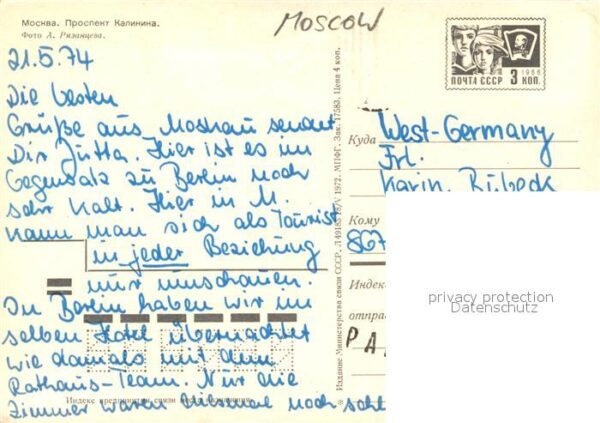 Москва. Проспект Калинина.
Фото А. Рязанцева.
MOSCOW
21.5.74
Die besten
Grüße aus Moskau sendet
Dir Jutta. Hier ist es im
Gegensatz zu Berlin noch
sehr kalt. Hier in M.
kann man sich als Tourist
in jeder Beziehung
nur umschauen.
In Berlin haben wir im
selben Hotel übernachtet
wie damals mit dem
Rathaus-Team. Nur die
Zimmer waren diesmal noch
Индекс предприятия связи
Издание Министерства связи СССР. 1972. МПФГ. Зак. 17583. Цена 4 коп.
ПОЧТА СССР 3 КОП.
1966
Куда West-Germany
Frl.
Karin
Кому
867
Индек
отправ
РА
privacy protection
Datenschutz